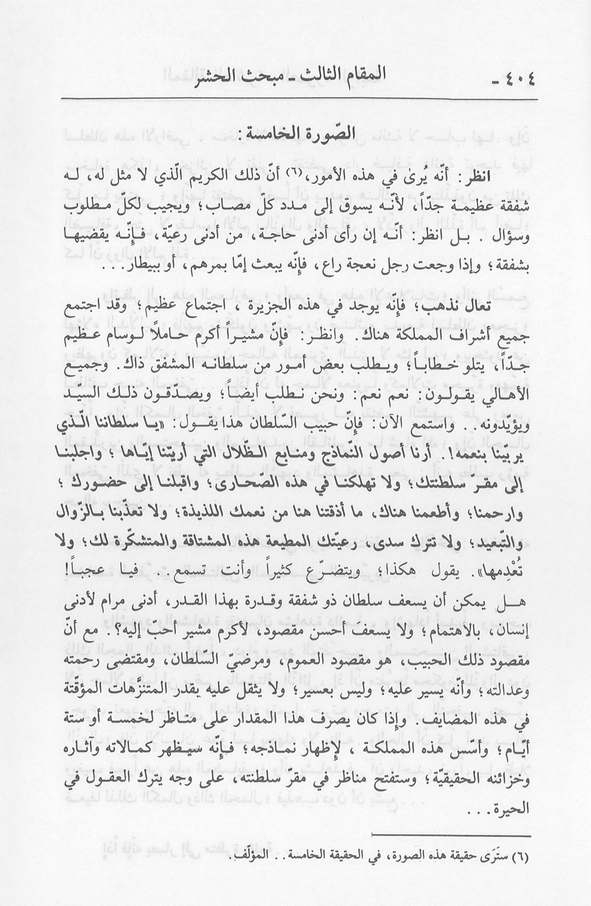 ٤٠٤ - المقام الثالث - مبحث الحشر
الصّورة الخامسة :
انظر : أنّه يُرىٰ في هذه الأمور،(٦) أنّ ذلك الكريم الّذي لا مثل له، لـه
شفقة عظيمـة جدّاً، لأنّـه يسوق إلى مـدد كلّ مصـاب؛ ويجيب لكلّ مـطلوب
وسؤال . بـل انظر: أنّـه إن رأى أدنى حاجـة، من أدنى رعيّـة، فـإنّـه يقضيهـا
بشفقة ؛ وإذا وجعت رجل نعجة راع، فإنّه يبعث إمّا بمرهم، أو ببيطار...
تعال نذهب؛ فإنّه يوجد في هذه الجزيرة ، اجتماع عظيم؛ وقد اجتمع
جميع أشراف المملكة هناك. وانظـر: فإنّ مشيـراً أكرم حـاملًا لـوسام عـظيم
جدّاً، يتلو خطـاباً؛ ويـطلب بعض أمـور من سلطانـه المشفق ذاك. وجميـع
الأهـالي يقـولـون: نعم نعم: ونحن نـطلب أيضـاً؛ ويصدّقـون ذلـك السيّـد
ويؤيّدونه. . واستمع الآن: فإنّ حبيب السّلطان هذا يقول: «يـا سلطاننـا الّذي
يربّينا بنعمه!. أرنا أصول النّماذج ومنابع الظّلال التي أريّتنا إيّاها ؛ واجلبنـا
إلى مقـرّ سلطنتك؛ ولا تهلكنـا في هذه الصّحـارى؛ واقبلنـا إلى حضـورك ؛
وارحمنا؛ وأطعمنا هناك، ما أذقتنا هنا من نعمك اللذيذة؛ ولا تعذّبنا بـالزّوال
والتّبعيد؛ ولا تترك سدى، رعيّتك المطيعة هذه المشتاقة والمتشكّرة لك؛ ولا
تُعْدِمها». يقول هكذا؛ ويتضـرّع كثيراً وأنت تسمع. . فيا عجبـاً!
هـل يمكن أن يسعف سلطان ذو شفقة وقـدرة بهذا القـدر، أدنى مرام لأدنى
إنسان، بالاهتمام؛ ولا يسعفَ أحسن مقصود، لأكرم مشير أحبّ إليه؟. مع أنّ
مقصود ذلك الحبيب، هو مقصود العموم، ومرضيّ السّلطان، ومقتضى رحمته
وعدالته؛ وأنّه يسير عليه؛ وليس بعسير؛ ولا يثقل عليه بقدر المتنزّهات المؤقّتة
في هذه المضايف. وإذا كان يصرف هذا المقدار على منـاظر لخمسـة أو ستة
أيّـام؛ وأسّس هذه المملكـة ، لإظهار نمـاذجه؛ فـإنّـه سيظهر كمـالاته وآثـاره
وخزائنه الحقيقيّة؛ وستفتح مناظر في مقرّ سلطنته، على وجه يترك العقـول في
الحيرة . . .
(٦) ستَرَى حقيقة هذه الصورة، في الحقيقة الخامسة. . المؤلّف.